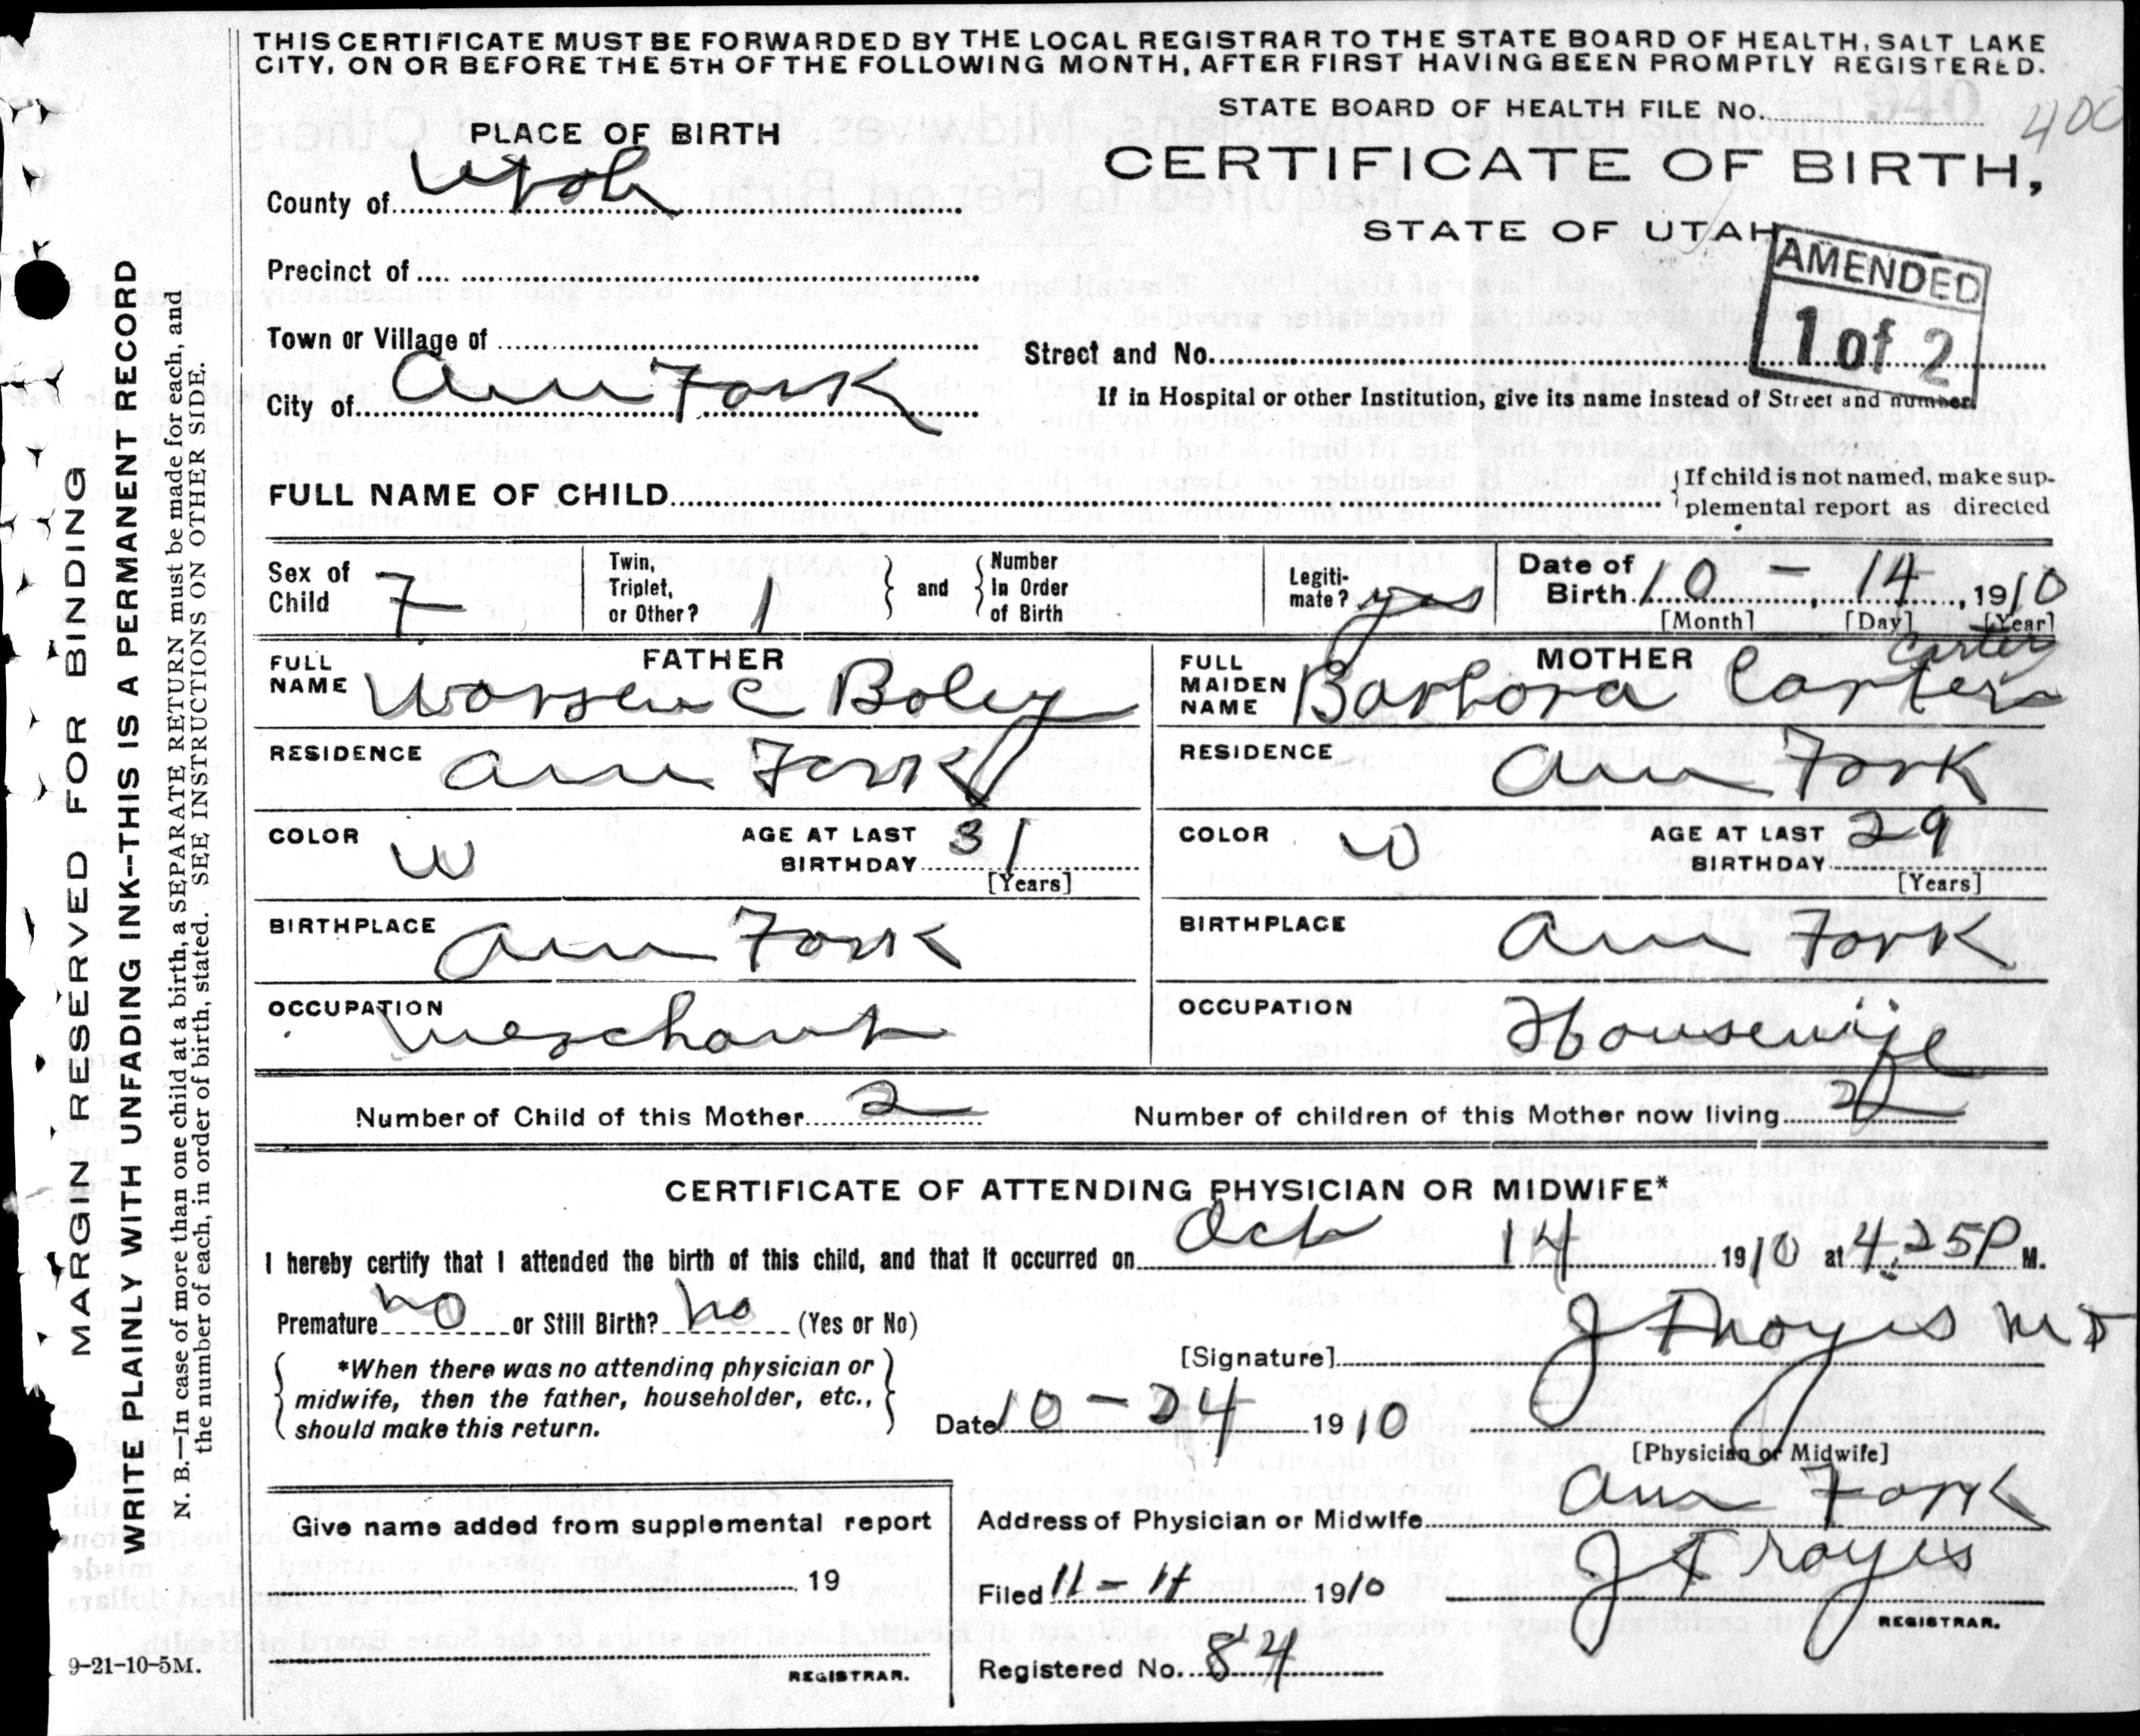 THIS CERTIFICATE MUST BE FORWARDED BY THE LOCAL REGISTRAR TO THE STATE BOARD OF HEALTH, SALT LAKE
CITY, ON OR BEFORE THE 5TH OF THE FOLLOWING MONTH, AFTER FIRST HAVING BEEN PROMPTLY REGISTERED.
STATE BOARD OF HEALTH FILE No. 400
PLACE OF BIRTH
CERTIFICATE OF BIRTH,
County of Utah
STATE OF UTAH
AMENDED
1 of 2
Precinct of
Town or Village of
Street and No.
City of Am Fork
If in Hospital or other Institution, give its name instead of Street and number.
FULL NAME OF CHILD
{If child is not named, make sup-
plemental report as directed
Sex of Child F
Twin, Triplet, or Other? 1 } and { Number In Order of Birth
Legiti-mate? yes
Date of Birth 10 - 14, 1910
[Month] [Day] [Year]
FATHER
FULL NAME Warren C Boley
RESIDENCE Am Fork
COLOR W
AGE AT LAST BIRTHDAY 31
[Years]
BIRTHPLACE Am Fork
OCCUPATION Merchant
MOTHER
Carter
FULL MAIDEN NAME Barbara Carter
RESIDENCE Am Fork
COLOR W
AGE AT LAST BIRTHDAY 29
[Years]
BIRTHPLACE Am Fork
OCCUPATION Housewife
Number of Child of this Mother 2
Number of children of this Mother now living 2
CERTIFICATE OF ATTENDING PHYSICIAN OR MIDWIFE*
I hereby certify that I attended the birth of this child, and that it occurred on Oct 14 1910 at 4:25 P M.
Premature no or Still Birth? no (Yes or No)
{ *When there was no attending physician or
midwife, then the father, householder, etc.,
should make this return. }
[Signature] J F Noyes MD
Date 10-24 1910
[Physician or Midwife]
Give name added from supplemental report
19
REGISTRAR.
Address of Physician or Midwife Am Fork
Filed 11-4 1910
J F Noyes
REGISTRAR.
Registered No. 84
9-21-10-5M.
MARGIN RESERVED FOR BINDING
WRITE PLAINLY WITH UNFADING INK--THIS IS A PERMANENT RECORD
N. B.—In case of more than one child at a birth, a SEPARATE RETURN must be made for each, and
the number of each, in order of birth, stated. SEE INSTRUCTIONS ON OTHER SIDE.